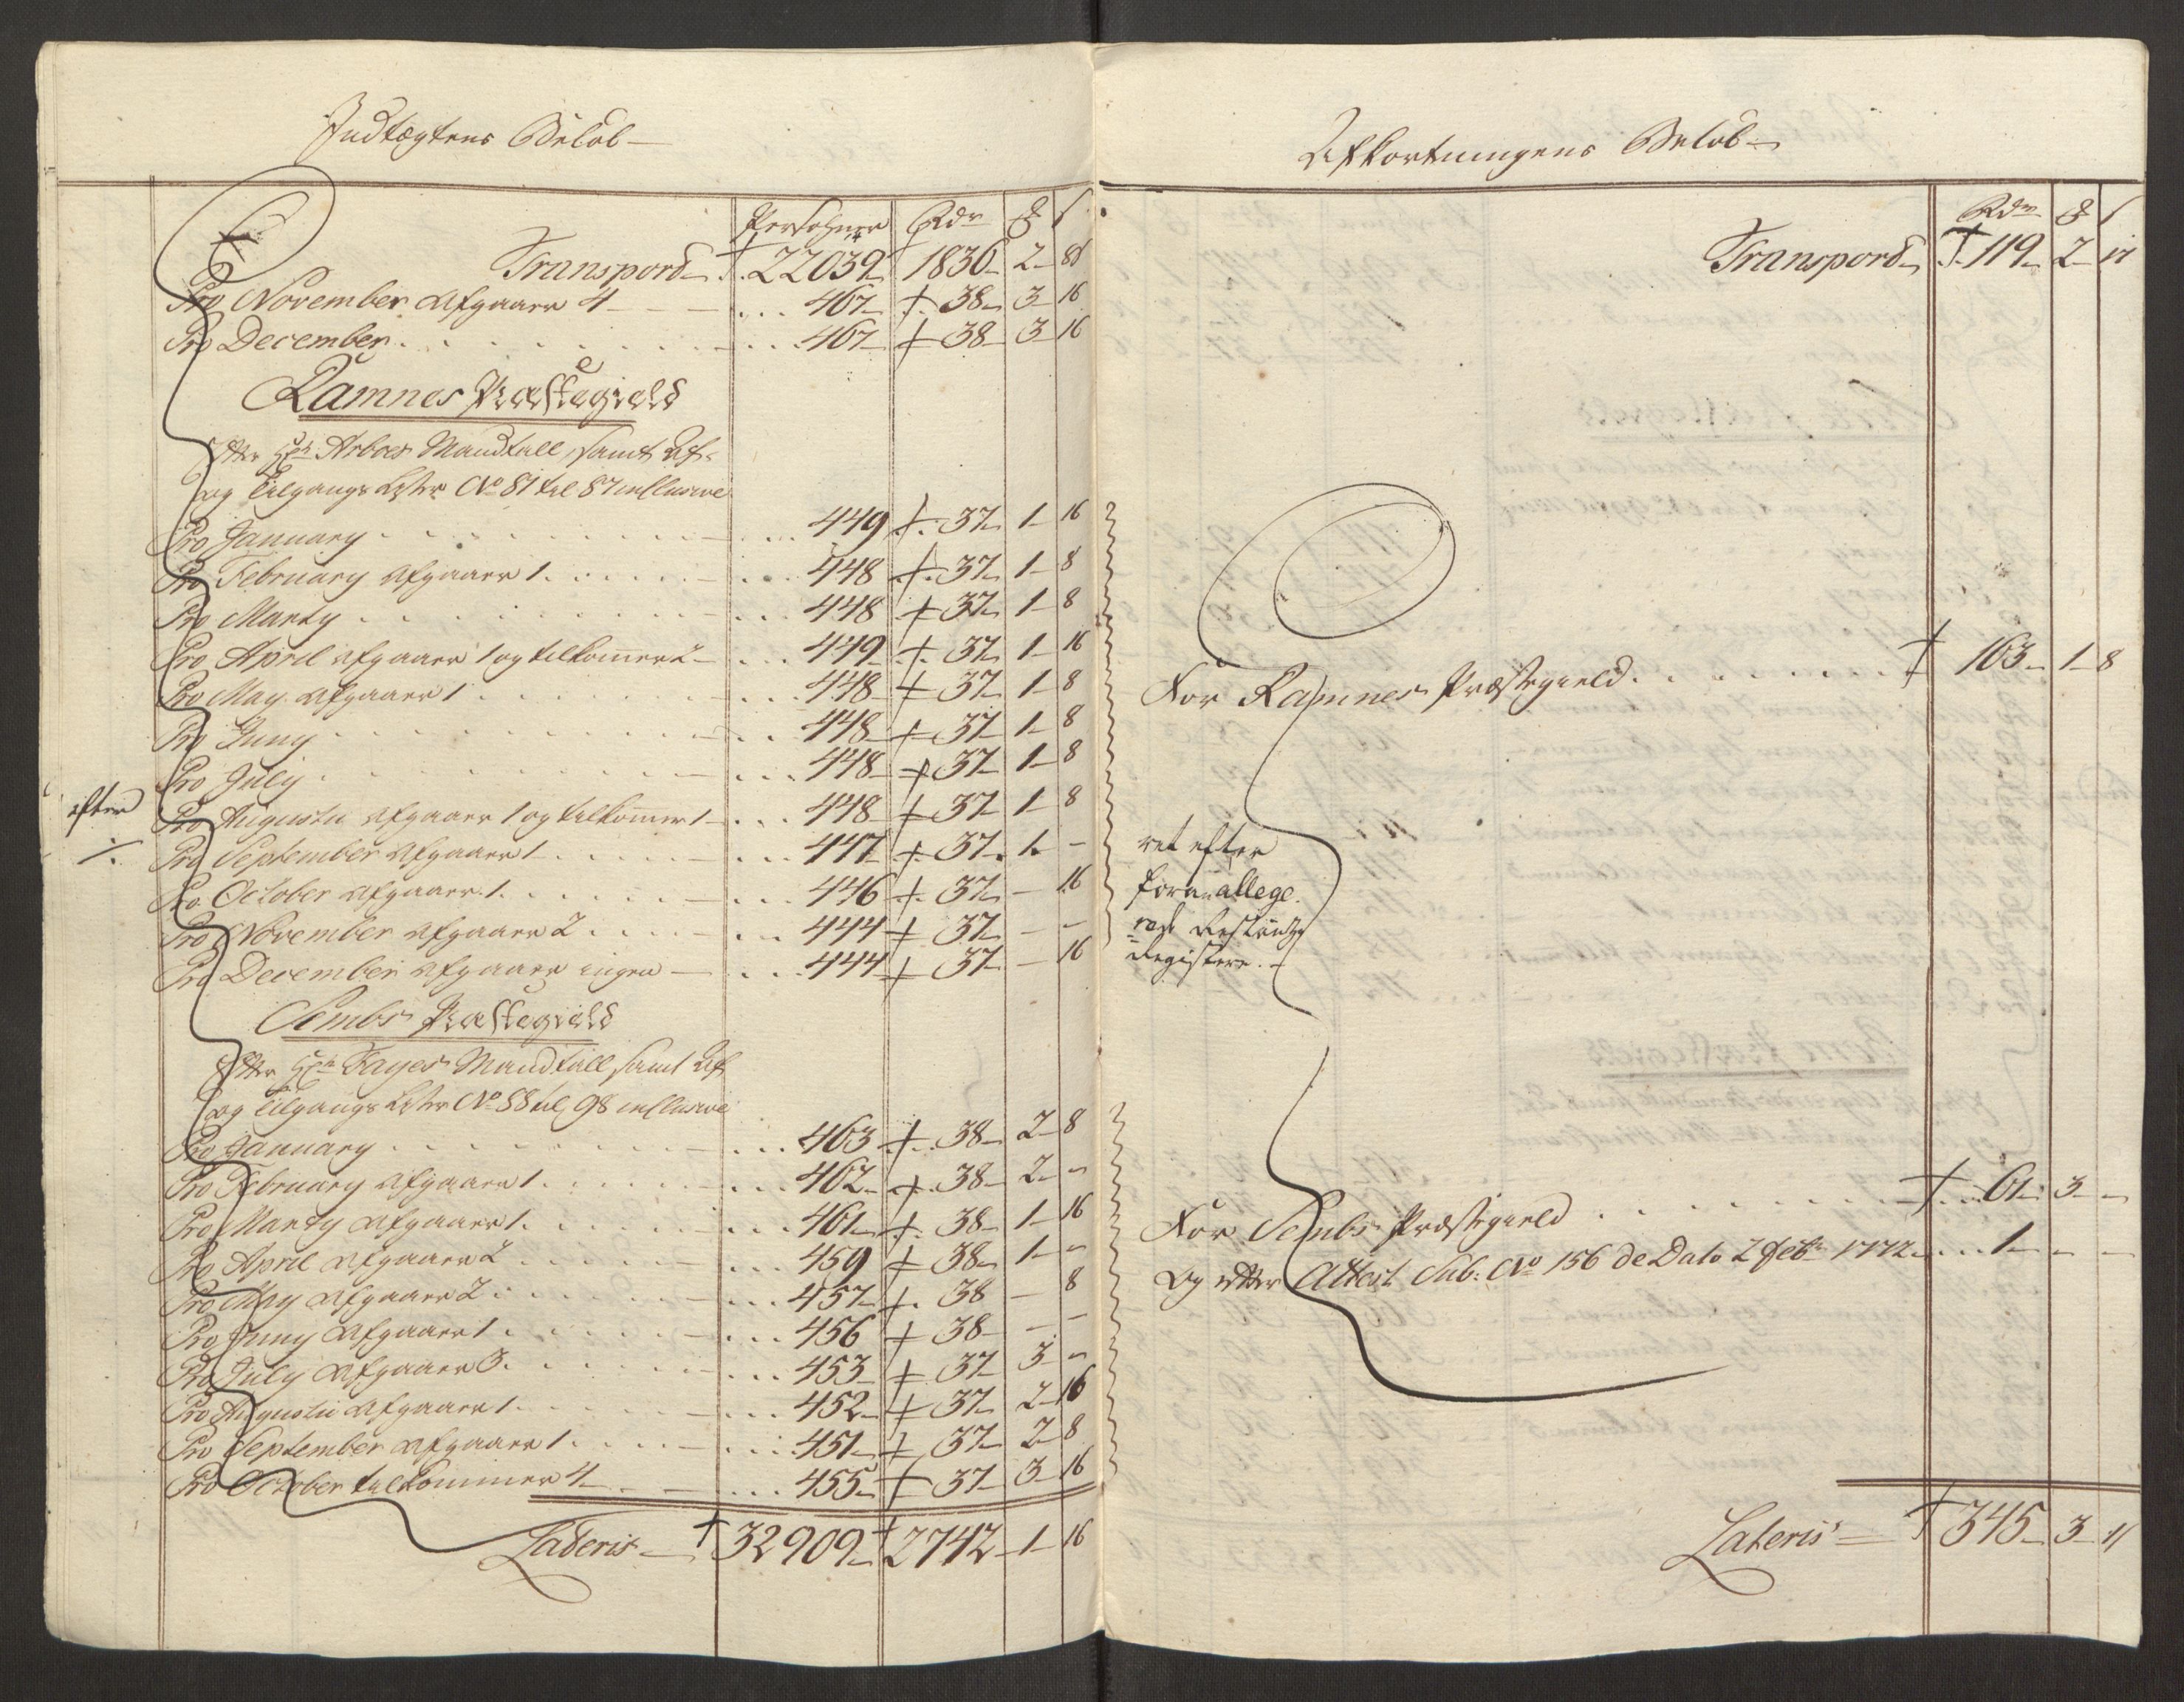 Indtægtens Beløb
Persohner Rdr ß
Transpord 22039 1836 2 8
Pro November afgaaer 4 467 38 3 16
Pro December 467 38 3 16
Ramnes Præstegield
Efter Hr Arboes Mandtall samt Af-
og Tilgangs Lister No 81 til 87 inclusive
Pro January 449 37 1 16
Pro February afgaaer 1 448 37 1 8
Pro Marty 448 37 1 8
Pro April afgaaer 1 og tilkommer 2 449 37 1 16
Pro May afgaaer 1 448 37 1 8
Pro Juny 448 37 1 8
Pro July 448 37 1 8
efter
Pro Augusti afgaaer 1 og tilkommer 1 448 37 1 8
Pro September afgaaer 1 447 37 1 -
Pro October afgaaer 1 446 37 - 16
Pro November afgaaer 2 444 37 - -
Pro December afgaaer ingen 444 37 - 16
Sembs Præstegield
Efter Hr Fayes Mandtall samt Af
og Tilgangs Lister No 88 til 98 inclusive
Pro January 463 38 2 8
Pro February afgaaer 1 462 38 2 -
Pro Marty afgaaer 1 461 38 1 16
Pro April afgaaer 2 459 38 1 -
Pro May afgaaer 2 457 38 - 8
Pro Juny afgaaer 1 456 38 - -
Pro July afgaaer 3 453 37 3 -
Pro Augusti afgaaer 1 452 37 2 16
Pro September afgaaer 1 451 37 2 8
Pro October tilkommer 4 455 37 3 16
Lateris 32909 2742 1 16
Afkortningens Beløb
Rdr ß
Transpord 119 2
For Ramnes Præstegield 163 1 8
ret efter
foran allege-
rede Restantz
Registere.
For Sembs Præstegield 61 3 -
Og efter Attest Sub: No 156 de Dato 2 febr 1772 1 - -
Lateris 345 3 11